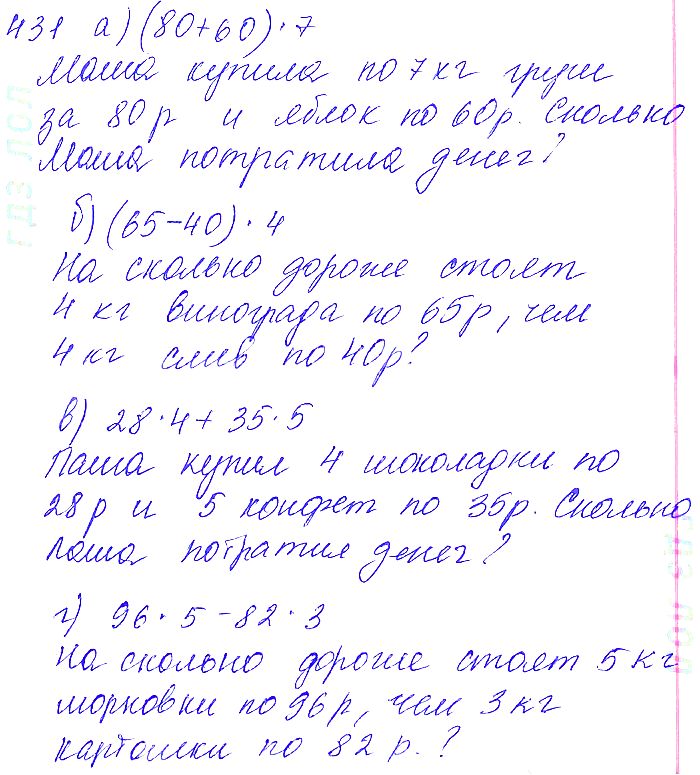 431 а) (80+60)·7
Маша купила по 7 кг груш
за 80р и яблок по 60р. Сколько
Маша потратила денег?
б) (65-40)·4
На сколько дороже стоят
4 кг винограда по 65р, чем
4 кг слив по 40р?
в) 28·4+35·5
Паша купил 4 шоколадки по
28р и 5 конфет по 35р. Сколько
Паша потратил денег?
г) 96·5-82·3
На сколько дороже стоят 5 кг
морковки по 96р, чем 3 кг
картошки по 82 р.?
гдз лол